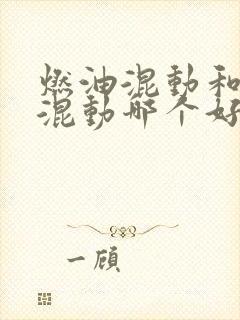 燃油混动和
混动哪个好
一顾